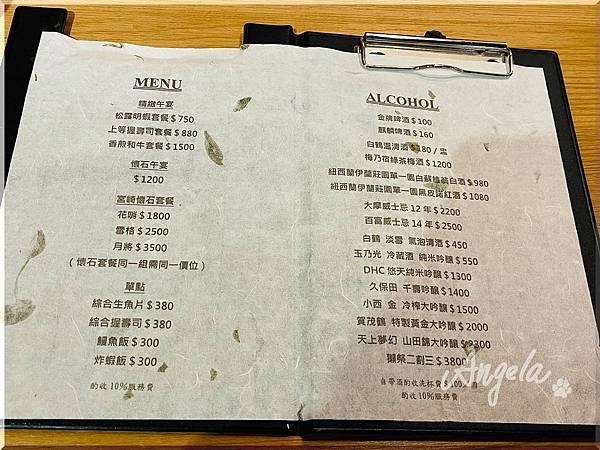 MENU
精緻午宴
松露明蝦套餐＄750
上等握壽司套餐＄880
香煎和牛套餐＄1500
懷石午宴
＄1200
宮崎懷石套餐
花哨＄1800
雪格＄2500
月將＄3500
（懷石套餐同一組需同一價位）
單點
綜合生魚片＄380
綜合握壽司＄380
鰻魚飯＄300
炸蝦飯＄300
酌收 10%服務費
ALCOHOL
金牌啤酒＄100
麒麟啤酒＄160
白鶴溫清酒＄180 / 盅
梅乃宿綠茶梅酒＄1200
紐西蘭伊蘭莊園單一園白蘇維翁白酒＄980
紐西蘭伊蘭莊園單一園黑皮諾紅酒＄1080
大摩威士忌 12 年＄2200
百富威士忌 14 年＄2500
白鶴 淡雪 氣泡清酒＄450
玉乃光 冷藏酒 純米吟釀＄550
DHC 悠天純米吟釀＄1300
久保田 千壽吟釀＄1400
小西 金 冷榨大吟釀＄1500
賀茂鶴 特製黃金大吟釀＄2000
天上夢幻 山田錦大吟釀＄2300
獺祭二割三＄3800
自帶酒酌收洗杯費＄100
酌收 10%服務費
Angela